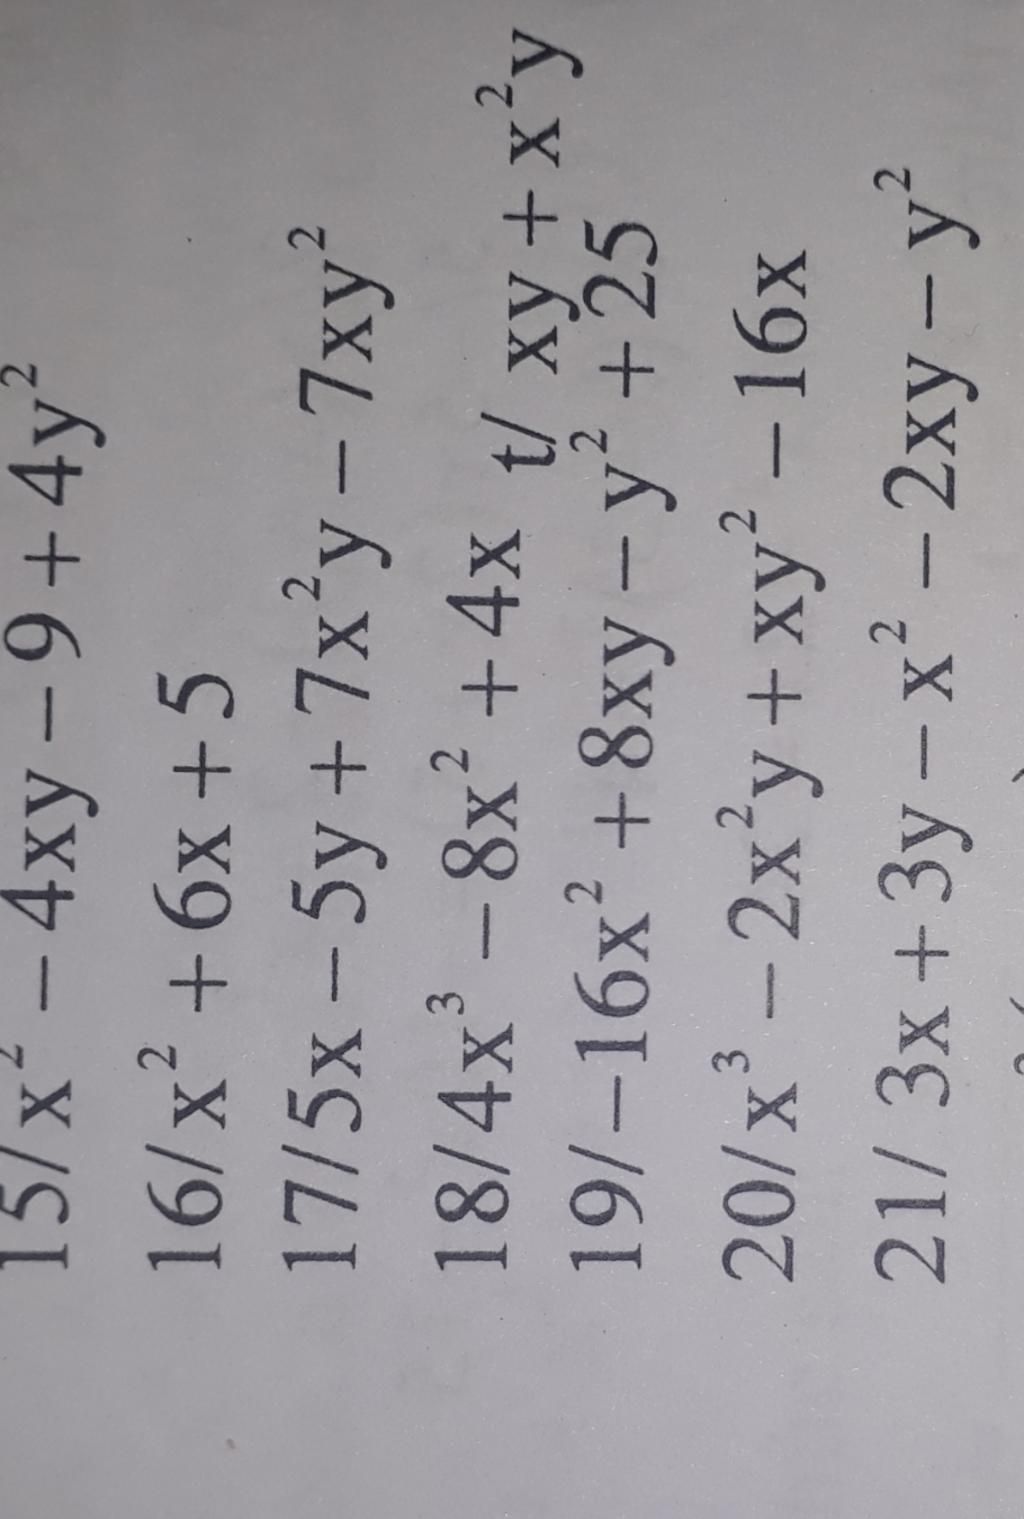 15/x² − 4xy − 9 + 4y²
16/x² + 6x + 5
17/5x − 5y + 7x²y − 7xy²
18/4x³ − 8x² + 4x t/ xy + x²y
19/−16x² + 8xy − y² + 25
20/x³ − 2x²y + xy² − 16x
21/ 3x + 3y − x² − 2xy − y²